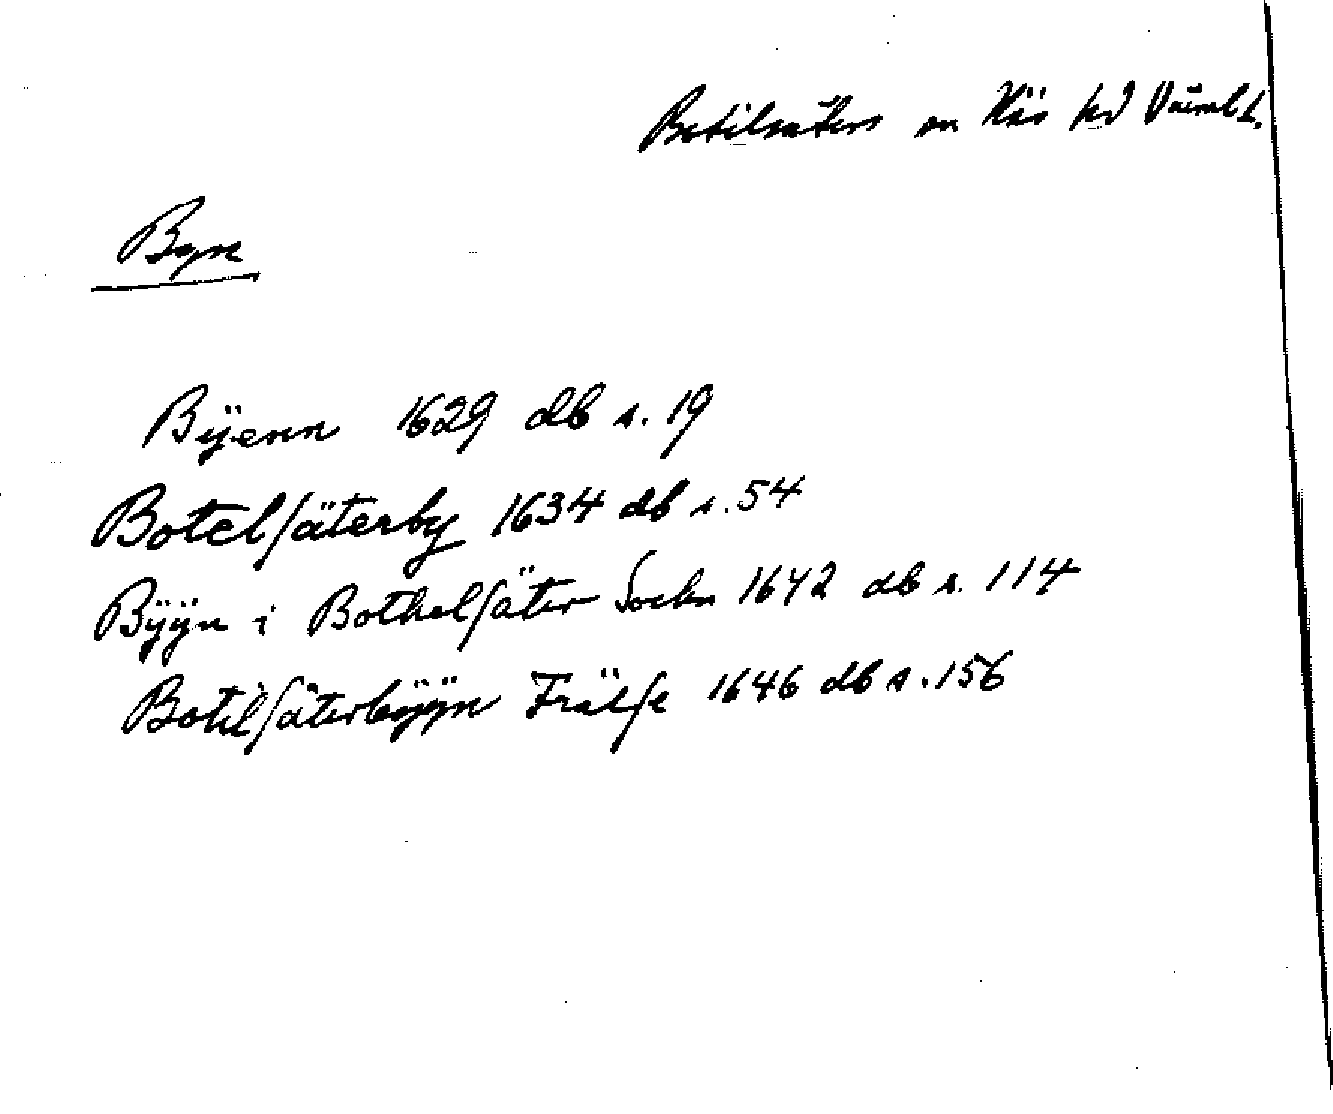 Botilsäters sn Näs hd Värml L.
Byn
Bÿenn 1629 db s. 19
Botelsäterby 1634 db s. 54
Bÿÿn i Bothelsäter Sochn 1642 db s. 114
Botilsäterbÿÿn Frälse 1646 db s. 156